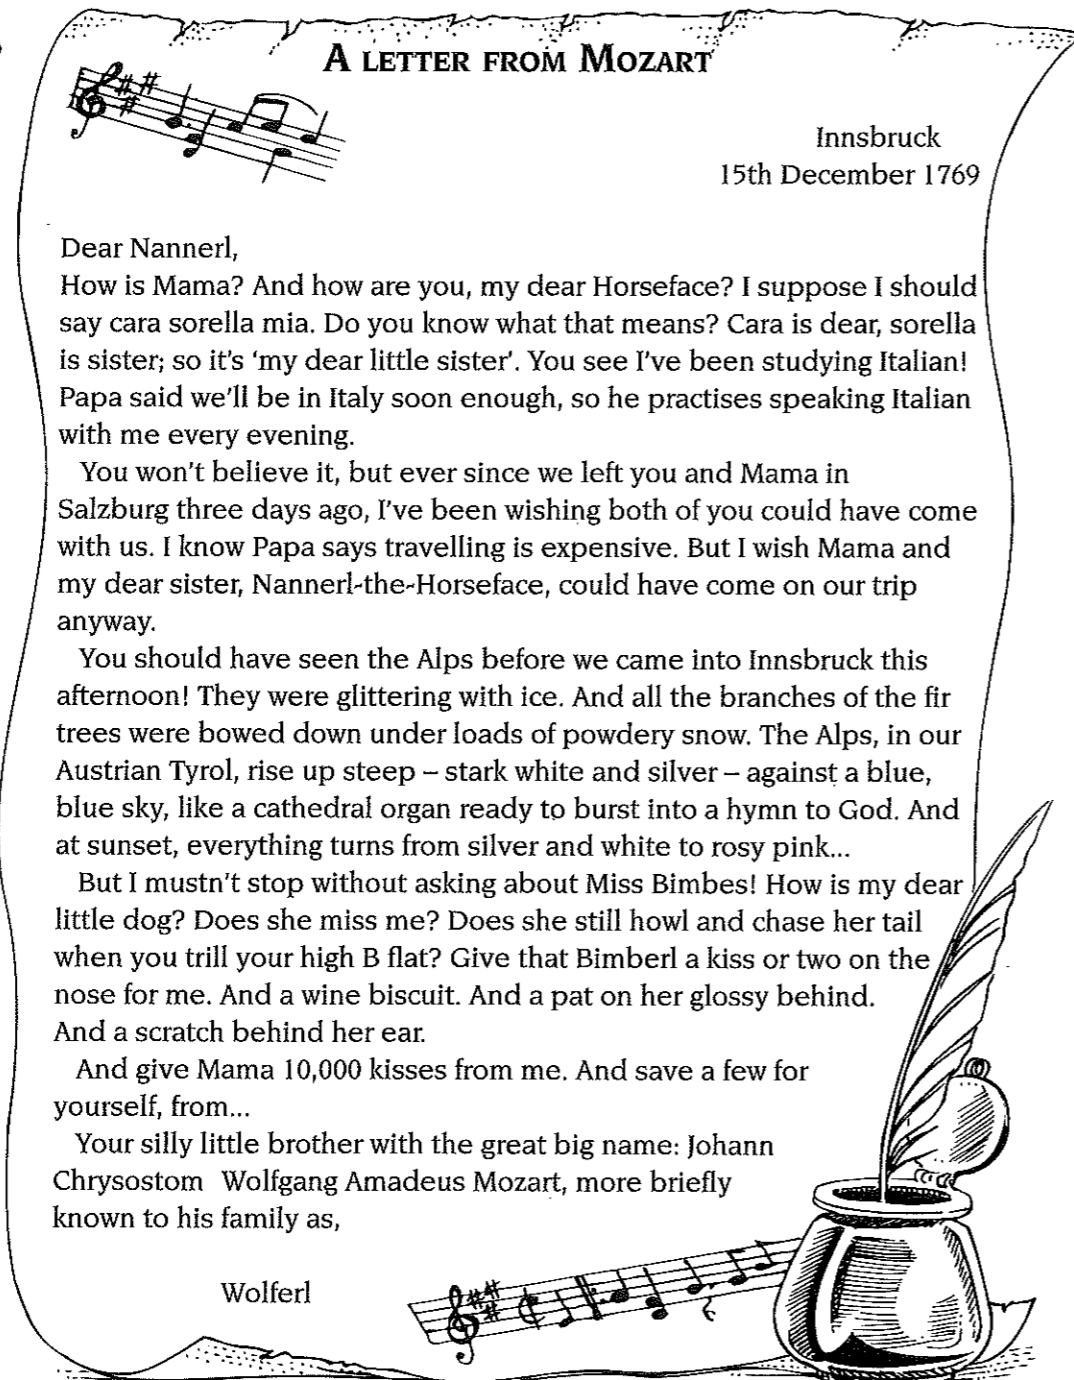 A LETTER FROM MOZART
Innsbruck
15th December 1769
Dear Nannerl,
How is Mama? And how are you, my dear Horseface? I suppose I should
say cara sorella mia. Do you know what that means? Cara is dear, sorella
is sister; so it's ‘my dear little sister’. You see I've been studying Italian!
Papa said we'll be in Italy soon enough, so he practises speaking Italian
with me every evening.
You won't believe it, but ever since we left you and Mama in
Salzburg three days ago, I've been wishing both of you could have come
with us. I know Papa says travelling is expensive. But I wish Mama and
my dear sister, Nannerl-the-Horseface, could have come on our trip
anyway.
You should have seen the Alps before we came into Innsbruck this
afternoon! They were glittering with ice. And all the branches of the fir
trees were bowed down under loads of powdery snow. The Alps, in our
Austrian Tyrol, rise up steep – stark white and silver – against a blue,
blue sky, like a cathedral organ ready to burst into a hymn to God. And
at sunset, everything turns from silver and white to rosy pink...
But I mustn't stop without asking about Miss Bimbes! How is my dear
little dog? Does she miss me? Does she still howl and chase her tail
when you trill your high B flat? Give that Bimberl a kiss or two on the
nose for me. And a wine biscuit. And a pat on her glossy behind.
And a scratch behind her ear.
And give Mama 10,000 kisses from me. And save a few for
yourself, from...
Your silly little brother with the great big name: Johann
Chrysostom Wolfgang Amadeus Mozart, more briefly
known to his family as,
Wolferl